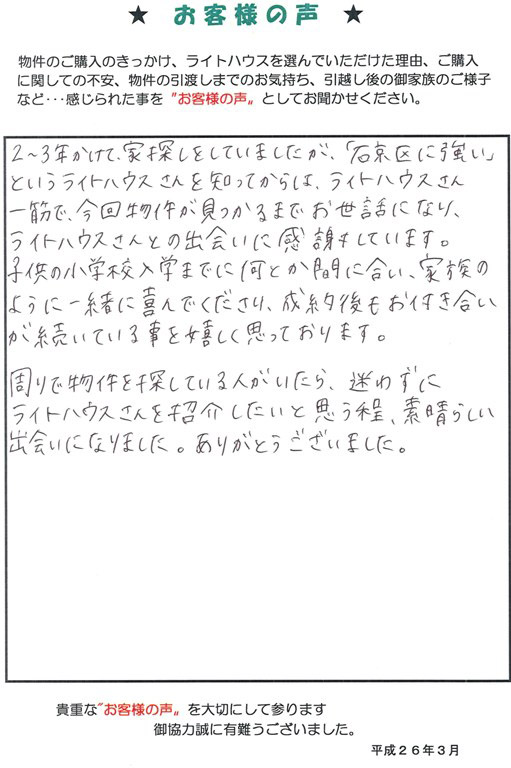 ★ お客様の声 ★
物件のご購入のきっかけ、ライトハウスを選んでいただけた理由、ご購入
に関しての不安、物件の引渡しまでのお気持ち、引越し後の御家族のご様子
など･･･感じられた事を〝お客様の声〟としてお聞かせください。
2～3年かけて、家探しをしていましたが、「右京区に強い」
というライトハウスさんを知ってからは、ライトハウスさん
一筋で、今回物件が見つかるまでお世話になり、
ライトハウスさんとの出会いに感謝をしています。
子供の小学校入学までに何とか間に合い、家族の
ように一緒に喜んでくださり、成約後もお付き合い
が続いている事を嬉しく思っております。
周りで物件を探している人がいたら、迷わずに
ライトハウスさんを紹介したいと思う程、素晴らしい
出会いになりました。ありがとうございました。
貴重な〝お客様の声〟を大切にして参ります
御協力誠に有難うございました。
平成２６年３月